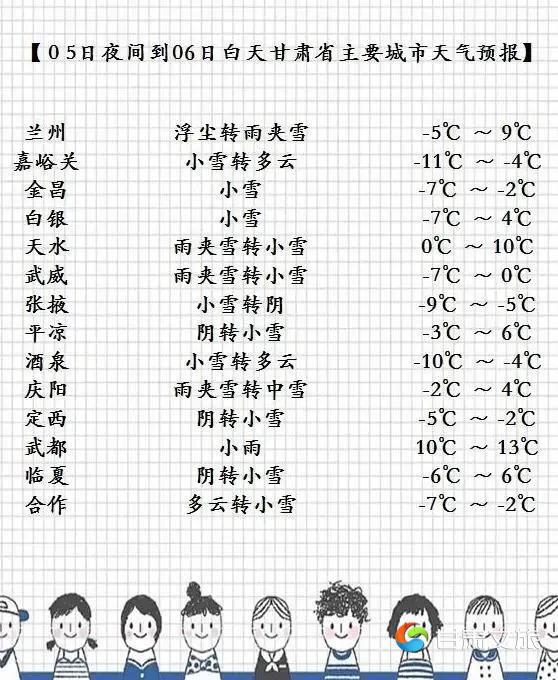 【05日夜间到06日白天甘肃省主要城市天气预报】
兰州 浮尘转雨夹雪 -5℃ ～ 9℃
嘉峪关 小雪转多云 -11℃ ～ -4℃
金昌 小雪 -7℃ ～ -2℃
白银 小雪 -7℃ ～ 4℃
天水 雨夹雪转小雪 0℃ ～ 10℃
武威 雨夹雪转小雪 -7℃ ～ 0℃
张掖 小雪转阴 -9℃ ～ -5℃
平凉 阴转小雪 -3℃ ～ 6℃
酒泉 小雪转多云 -10℃ ～ -4℃
庆阳 雨夹雪转中雪 -2℃ ～ 4℃
定西 阴转小雪 -5℃ ～ -2℃
武都 小雨 10℃ ～ 13℃
临夏 阴转小雪 -6℃ ～ 6℃
合作 多云转小雪 -7℃ ～ -2℃
甘肃文旅